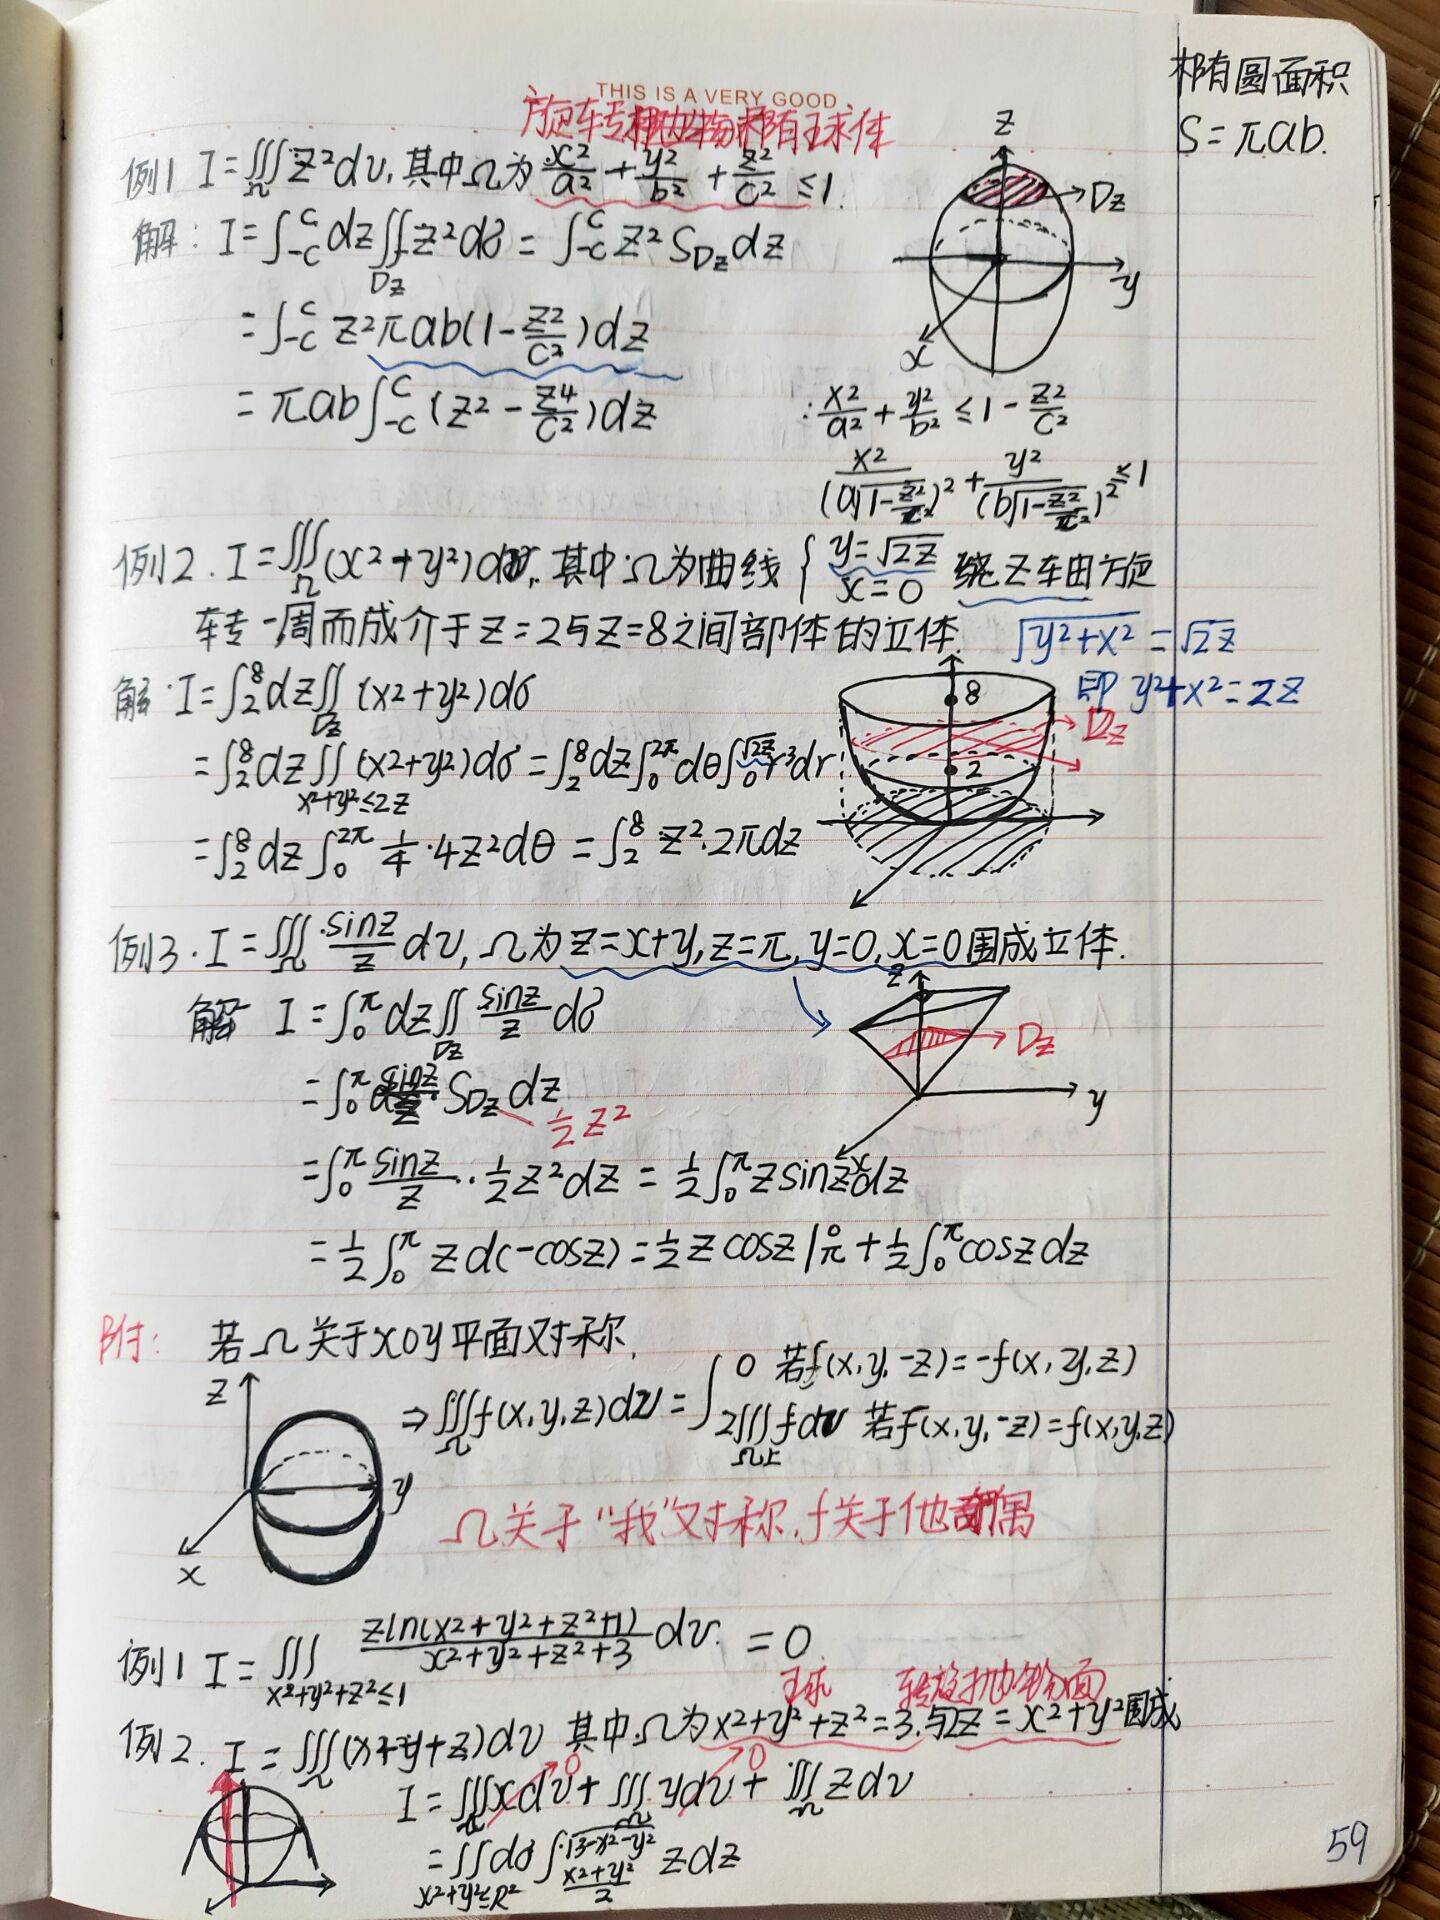 THIS IS A VERY GOOD
椭圆面积
S=πab.
例1 I=∭_Ω z²dv,其中Ω为 x²/a²+y²/b²+z²/c²≤1.
z
Dz
y
x
解: I=∫_{-c}^{c}dz∬_{Dz}z²dσ=∫_{-c}^{c}z²S_{Dz}dz
=∫_{-c}^{c} z²πab(1-z²/c²)dz
=πab∫_{-c}^{c}(z²-z⁴/c²)dz
∴x²/a²+y²/b²≤1-z²/c²
例2. I=∭_Ω(x²+y²)dv, 其中Ω为曲线{y=√2z x=0 绕z轴旋
转一周而成介于z=2与z=8之间部体的立体.
√y²+x²=√2z
即 y²+x²=2z
解·I=∫_2^8dz∬_{Dz}(x²+y²)dσ
=∫_2^8dz∬_{x²+y²≤2z}(x²+y²)dσ=∫_2^8dz∫_0^{2π}dθ∫_0^{√2z}r³dr
=∫_2^8dz∫_0^{2π}1/4·4z²dθ=∫_2^8 z²·2πdz
8
Dz
2
例3. I=∭_Ω sinz/z dv, Ω为z=x+y, z=π, y=0, x=0围成立体.
解 I=∫_0^π dz∬_{Dz} sinz/z dσ
=∫_0^π sinz/z S_{Dz}dz
1/2z²
=∫_0^π sinz/z··1/2z²dz=1/2∫_0^π zsinzdz
=1/2∫_0^π zd(-cosz)=1/2zcosz|_π^0+1/2∫_0^π coszdz
z
Dz
y
x
附: 若Ω关于xoy平面对称,
⇒∭_Ω f(x,y,z)dv={0 若f(x,y,-z)=-f(x,y,z)
2∭_{Ω上}fdv 若f(x,y,-z)=f(x,y,z)
z
y
x
Ω关于“我”对称,f关于他奇偶
例1 I=∭_{x²+y²+z²≤1} zln(x²+y²+z²+1)/x²+y²+z²+3 dv. =0
球 旋转抛物面
例2. I=∭_Ω(x+y+z)dv 其中Ω为x²+y²+z²=3.与2z=x²+y²围成
I=∭_Ω xdv+∭_Ω ydv+∭_Ω zdv
0
0
=∬_{x²+y²≤R²}dσ∫_{x²+y²/2}^{√3-x²-y²}zdz
59